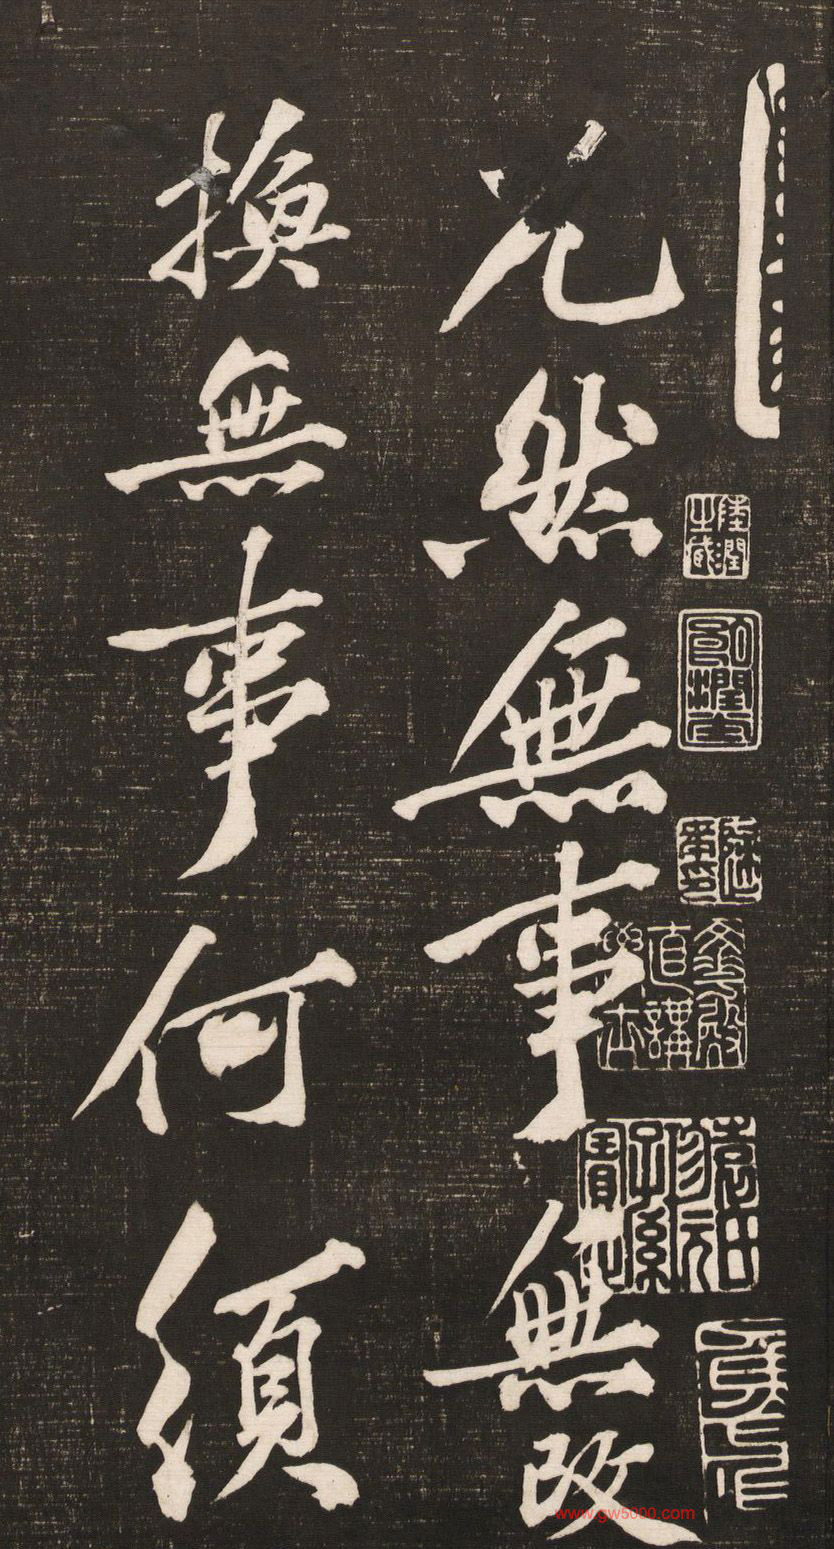 陸潤之藏
兀然無事無改
換無事何須
www.gw5000.com